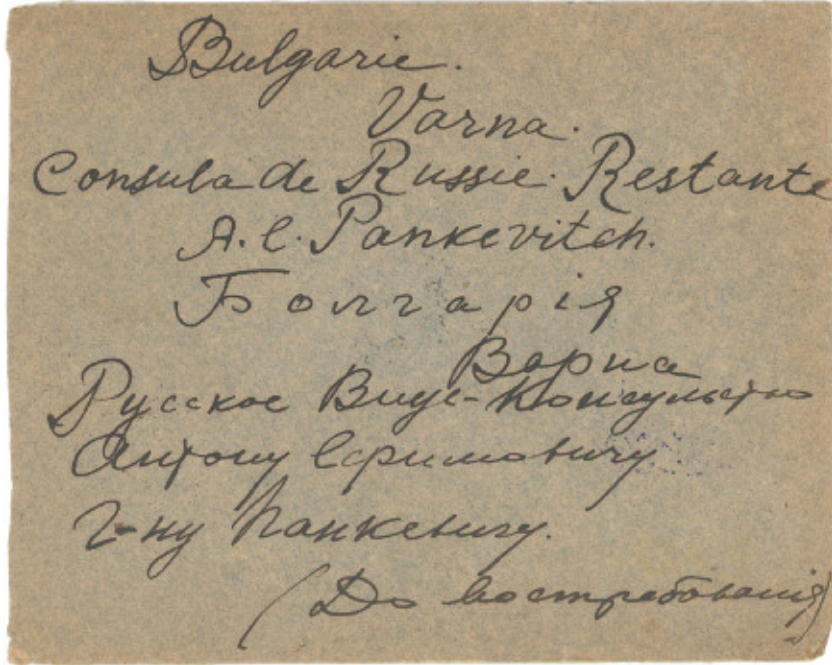 Bulgarie.
Varna.
Consula de Russie. Restante
A. E. Pankevitch.
Болгарія
Варна
Русское Вице-Консульство
Антону Ефимовичу
Г-ну Панкевичу.
(До востребованія)